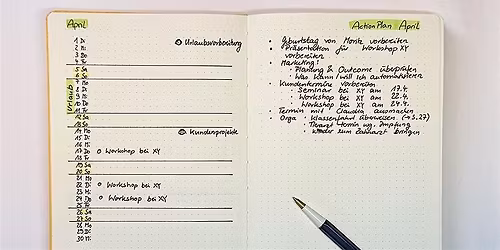 April
1 Di
2 Mi
3 Do
4 Fr
5 Sa
6 So
7 Mo
8 Di
9 Mi
10 Do
11 Fr
12 Sa
13 So
14 Mo
15 Di
16 Mi
17 Do Workshop bei XY
18 Fr
19 Sa
20 So
21 Mo
22 Di Workshop bei XY
23 Mi
24 Do Workshop bei XY
25 Fr
26 Sa
27 So
28 Mo
29 Di
30 Mi
Urlaub
Urlaubsvorbereitung
Kundenprojekte
ActionPlan April
Geburtstag von Moritz vorbereiten
Präsentation für Workshop XY
vorbereiten
Marketing:
Planung & Outcome überprüfen
Was kann/will ich automatisieren
Kundentermine vorbereiten
Seminar bei XY am 17.4.
Workshop bei XY am 22.4.
Workshop bei XY am 24.4.
Termin mit Claudia ausmachen
Orga Klassenfahrt überweisen (→S.27)
Tierarzt Termin wg. Impfung
Kinder zum Zahnarzt bringen